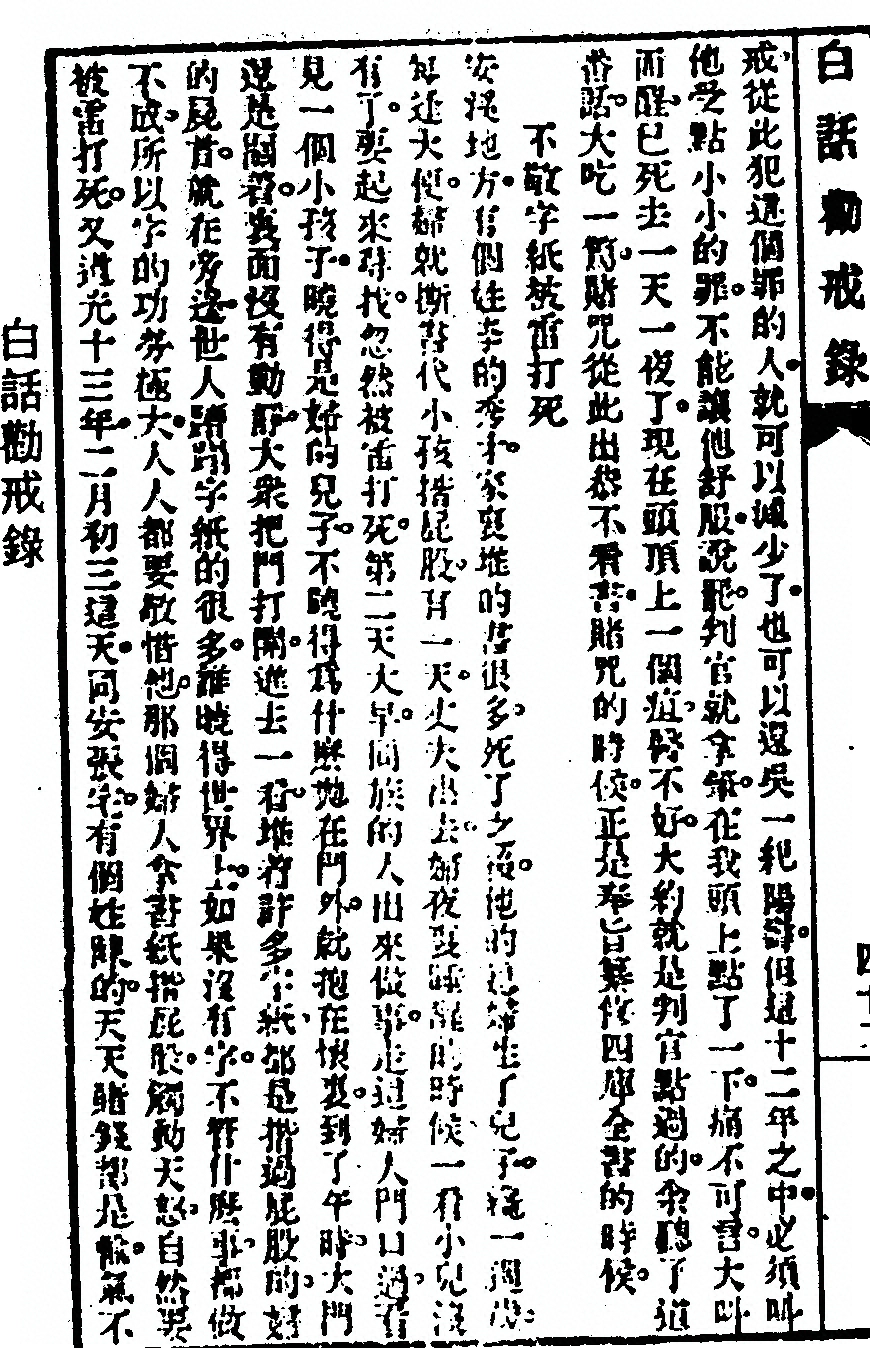 白話勸戒錄
四十二
戒從此犯這個罪的人就可以減少了也可以還吳一紀陽壽但這十二年之中必須叫
他受點小小的罪不能讓他舒服說罷判官就拿筆在我頭上點了一下痛不可言大叫
而醒已死去一天一夜了現在頭頂上一個疽醫不好大約就是判官點過的余聽了這
番話大吃一驚賭咒從此出恭不看書賭咒的時候正是奉旨纂修四庫全書的時候
不敬字紙被雷打死
安港地方有個姓李的秀才家裏堆的書很多死了之後他的媳婦生了兒子纔一週歲
每逢大便婦就撕書代小孩揩屁股有一天丈夫出去婦夜裏睡醒的時候一看小兒沒
有了要起來尋找忽然被雷打死第二天大早同族的人出來做事走過婦人門口過看
見一個小孩子曉得是婦的兒子不曉得爲什麽抛在門外就抱在懷裏到了午時大門
還是關着裏面沒有動靜大衆把門打開進去一看堆着許多字紙都是揩過屁股的婦
的屍首就在旁邊世人蹧蹋字紙的很多誰曉得世界上如果沒有字不管什麽事都做
不成所以字的功勞極大人人都要敬惜他那個婦人拿書紙揩屁股觸動天怒自然要
被雷打死又道光十三年二月初三這天同安張宅有個姓陳的天天賭錢都是輸氣不
白話勸戒錄